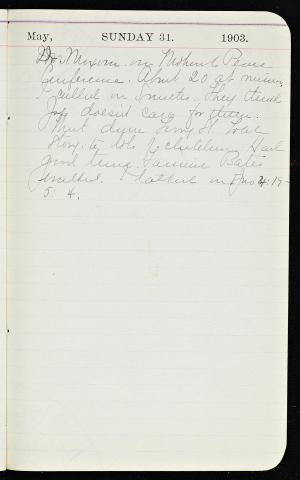 May, SUNDAY 31. 1903.
Mixon on Mohonk Peace
Conference. About 20 at
I called on Smiths. They think
Joy doesn't care for them.
Went down Ferry St. Told
story to lots of children. Had
good time. Fannie Bates
I talked on Jno 4:19-
5:4.